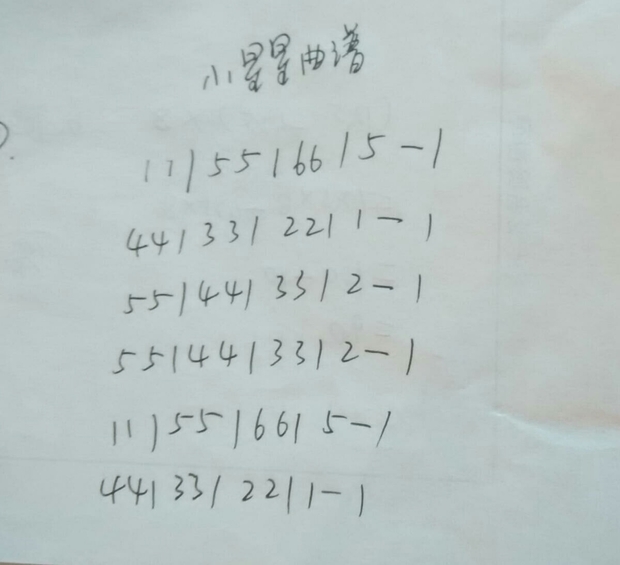 小星星曲谱
11|55|66|5-|
44|33|22|1-|
55|44|33|2-|
55|44|33|2-|
11|55|66|5-|
44|33|22|1-|